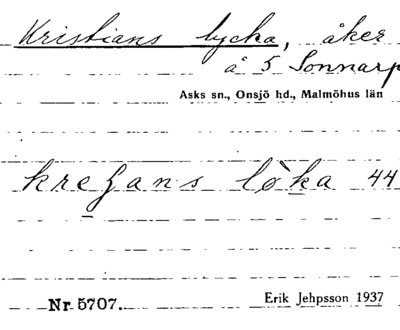 Kristians lycka, åker
å 5 Sonnarp
Asks sn., Onsjö hd., Malmöhus län
löka 44
Nr 5707.
Erik Jehpsson 1937